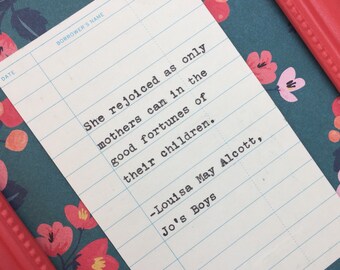 BORROWER'S NAME
DATE
She rejoiced as only
mothers can in the
good fortunes of
their children.
-Louisa May Alcott,
Jo's Boys